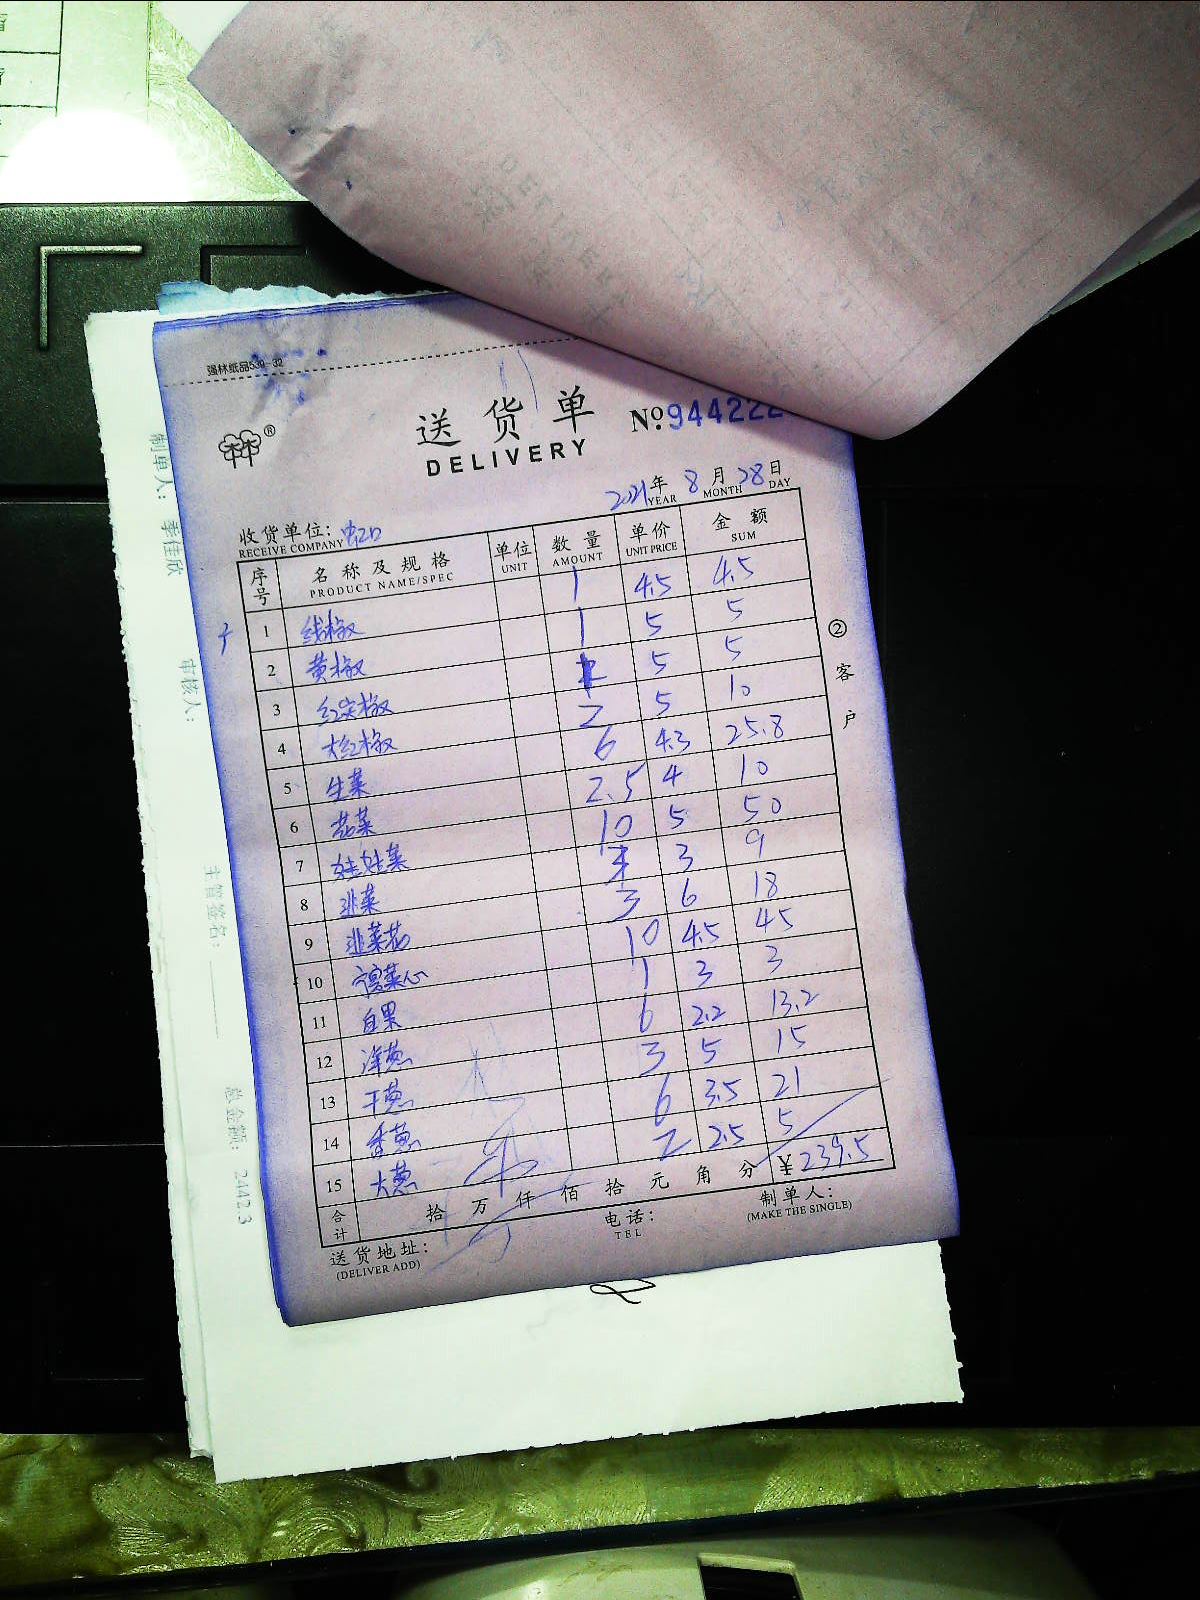 强林纸品530-32
送货单
DELIVERY
No.944222
2021年 8月 28日
YEAR MONTH DAY
收货单位:
RECEIVE COMPANY
序号 名称及规格 单位 数量 单价 金额
PRODUCT NAME/SPEC UNIT AMOUNT UNIT PRICE SUM
1 线椒 1 4.5 4.5
2 黄椒 1 5 5
3 红尖椒 1 5 5
4 大红椒 2 5 10
5 生菜 6 4.3 25.8
6 花菜 2.5 4 10
7 娃娃菜 10 5 50
8 韭菜 3 3 9
9 韭菜花 3 6 18
10 菜心 10 4.5 45
11 白果 1 3 3
12 洋葱 6 2.2 13.2
13 干葱 3 5 15
14 香葱 6 3.5 21
15 大葱 2 2.5 5
合计 拾 万 仟 佰 拾 元 角 分 ¥239.5
送货地址: 电话: 制单人:
(DELIVER ADD) TEL (MAKE THE SINGLE)
② 客户
制单人: 季佳欣
审核人:
主管签名:
总金额: 2442.3